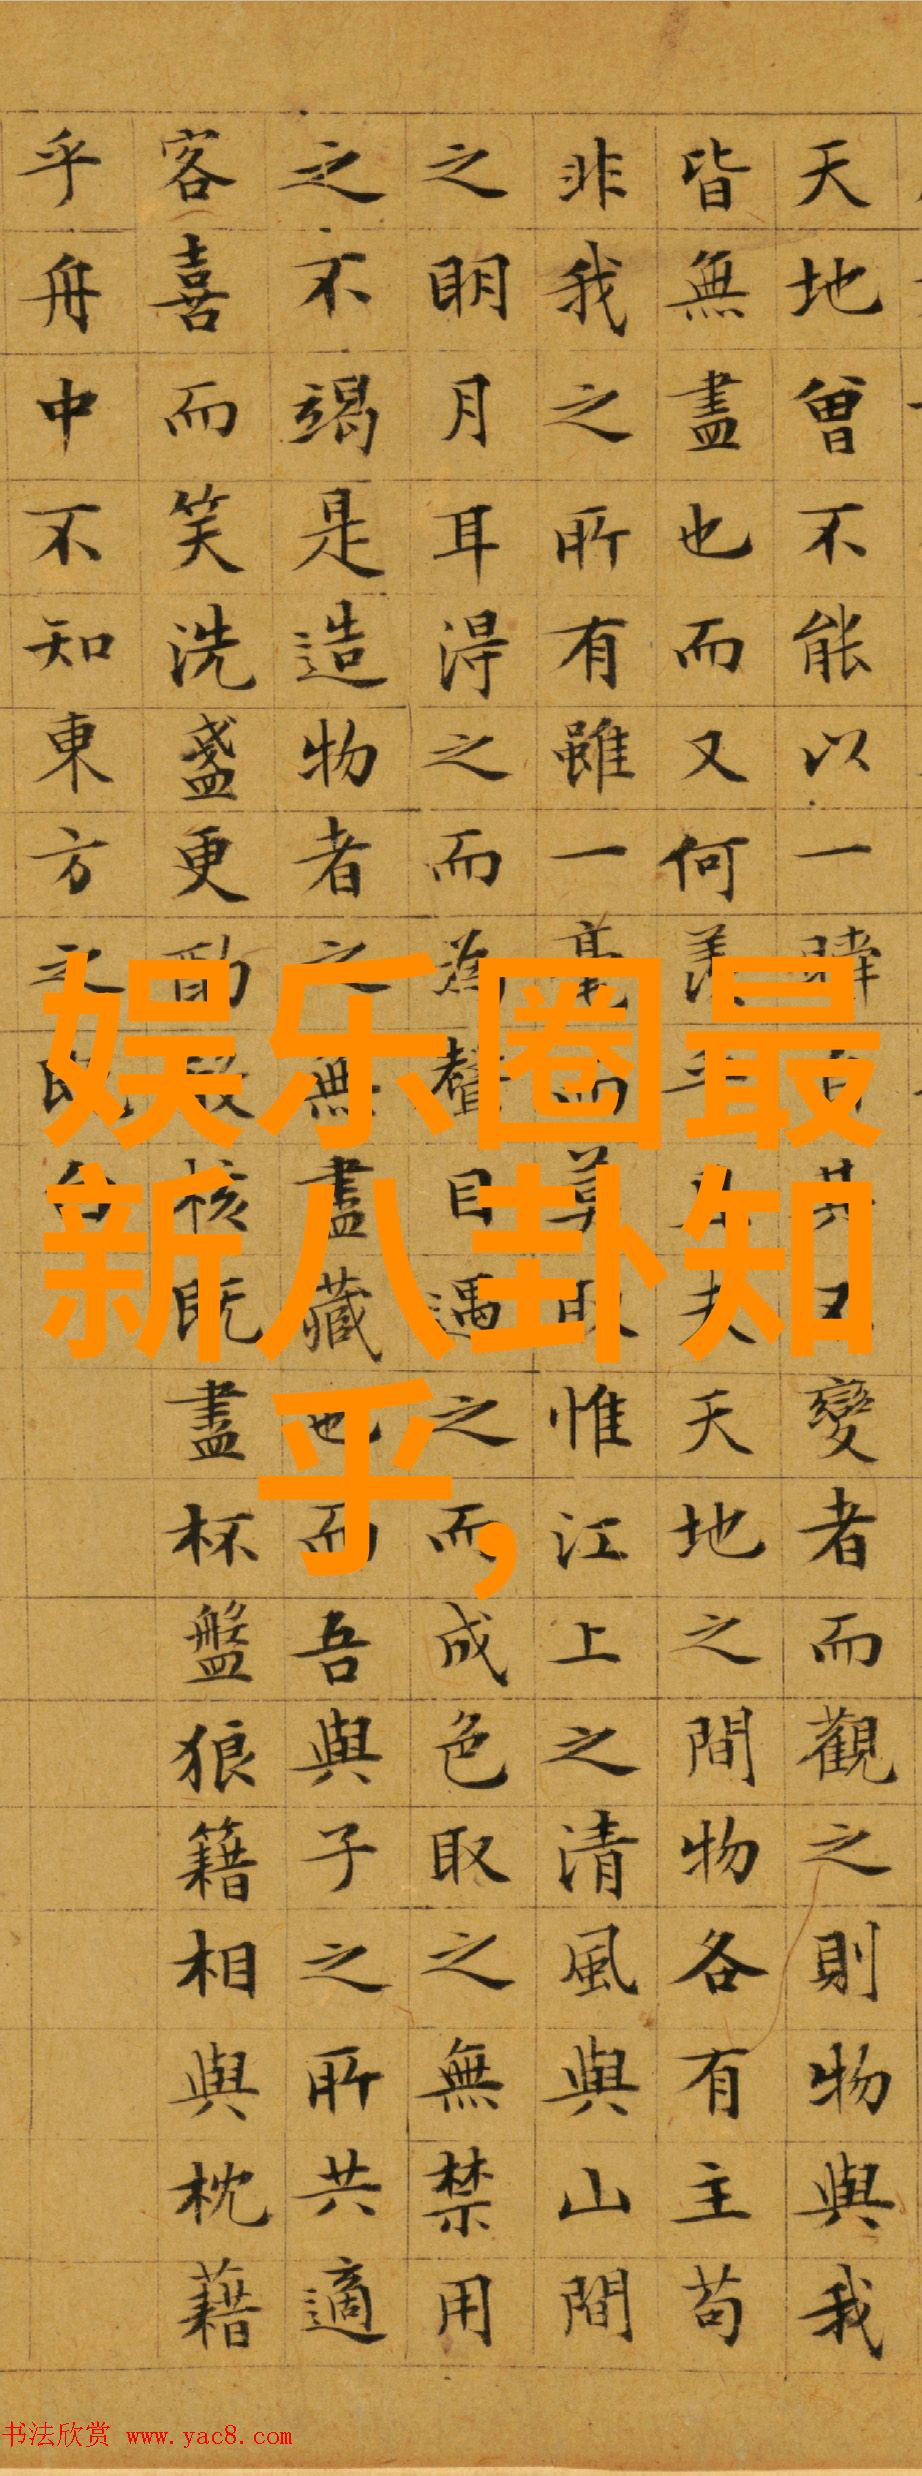 天地曾不能以一瞬自其變者而觀之則物與我
皆無盡也而又何羨乎夫天地之間物各有主苟
非我之所有雖一毫而莫取惟江上之清風與山間
之明月耳得之而為聲目遇之而成色取之無禁用
之不竭是造物者之無盡藏也而吾與子之所共適
客喜而笑洗盞更酌核既盡杯盤狼籍相與枕藉
乎舟中不知東方之既白
娱乐圈最
新八卦知
乎,
书法欣赏 www.yac8.com